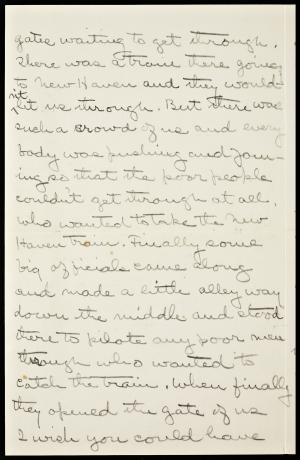 gates waiting to get through.
There was a train there going
to New Haven and they would-
n't let us through. But there was
such a crowd of us and every
body was pushing and jam-
ing so that the poor people
couldn't get through at all,
who wanted to take the New
Haven train. Finally some
big oficials came along
and made a little alley way
down the middle and stood
there to pilote any poor men
through who wanted to
catch the train. When finally
they opened the gate of us
I wish you could have